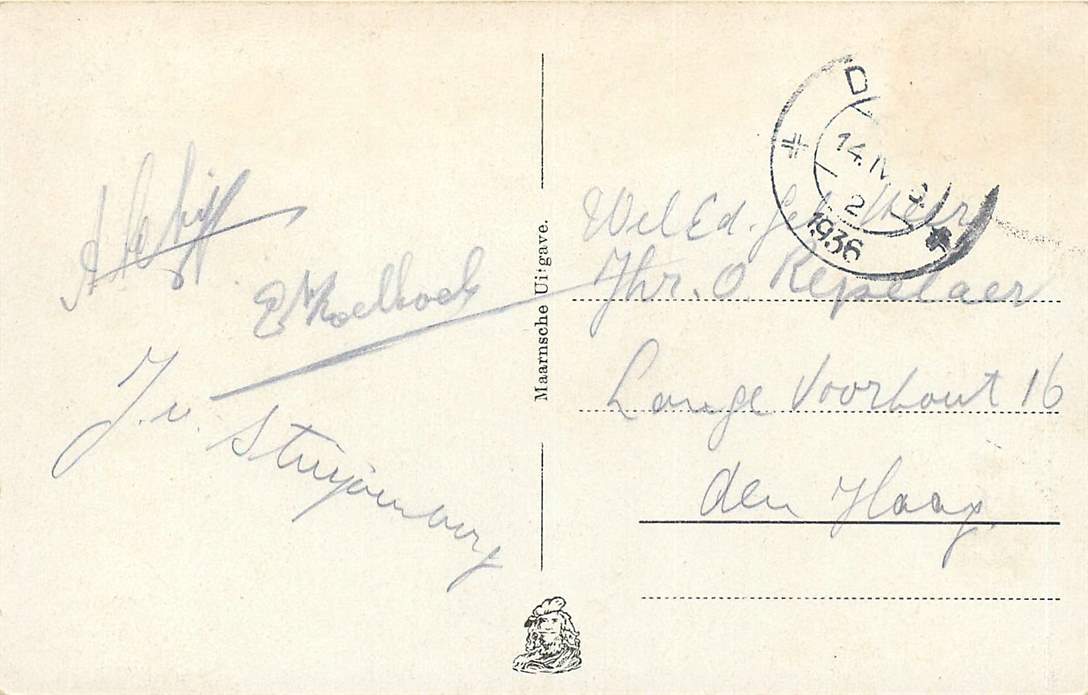 E Koelhoek
J. v. Stuijvenberg
Maarnsche Uitgave.
D
14. IV
2
1936
Wel Ed. Geb. Heer
Jhr. O. Repelaer
Lange Voorhout 16
den Haag.